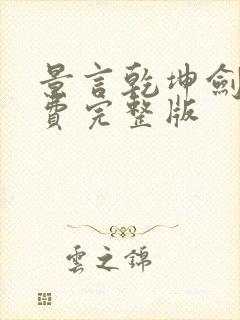 景言乾坤劍
費完整版
雲之錦